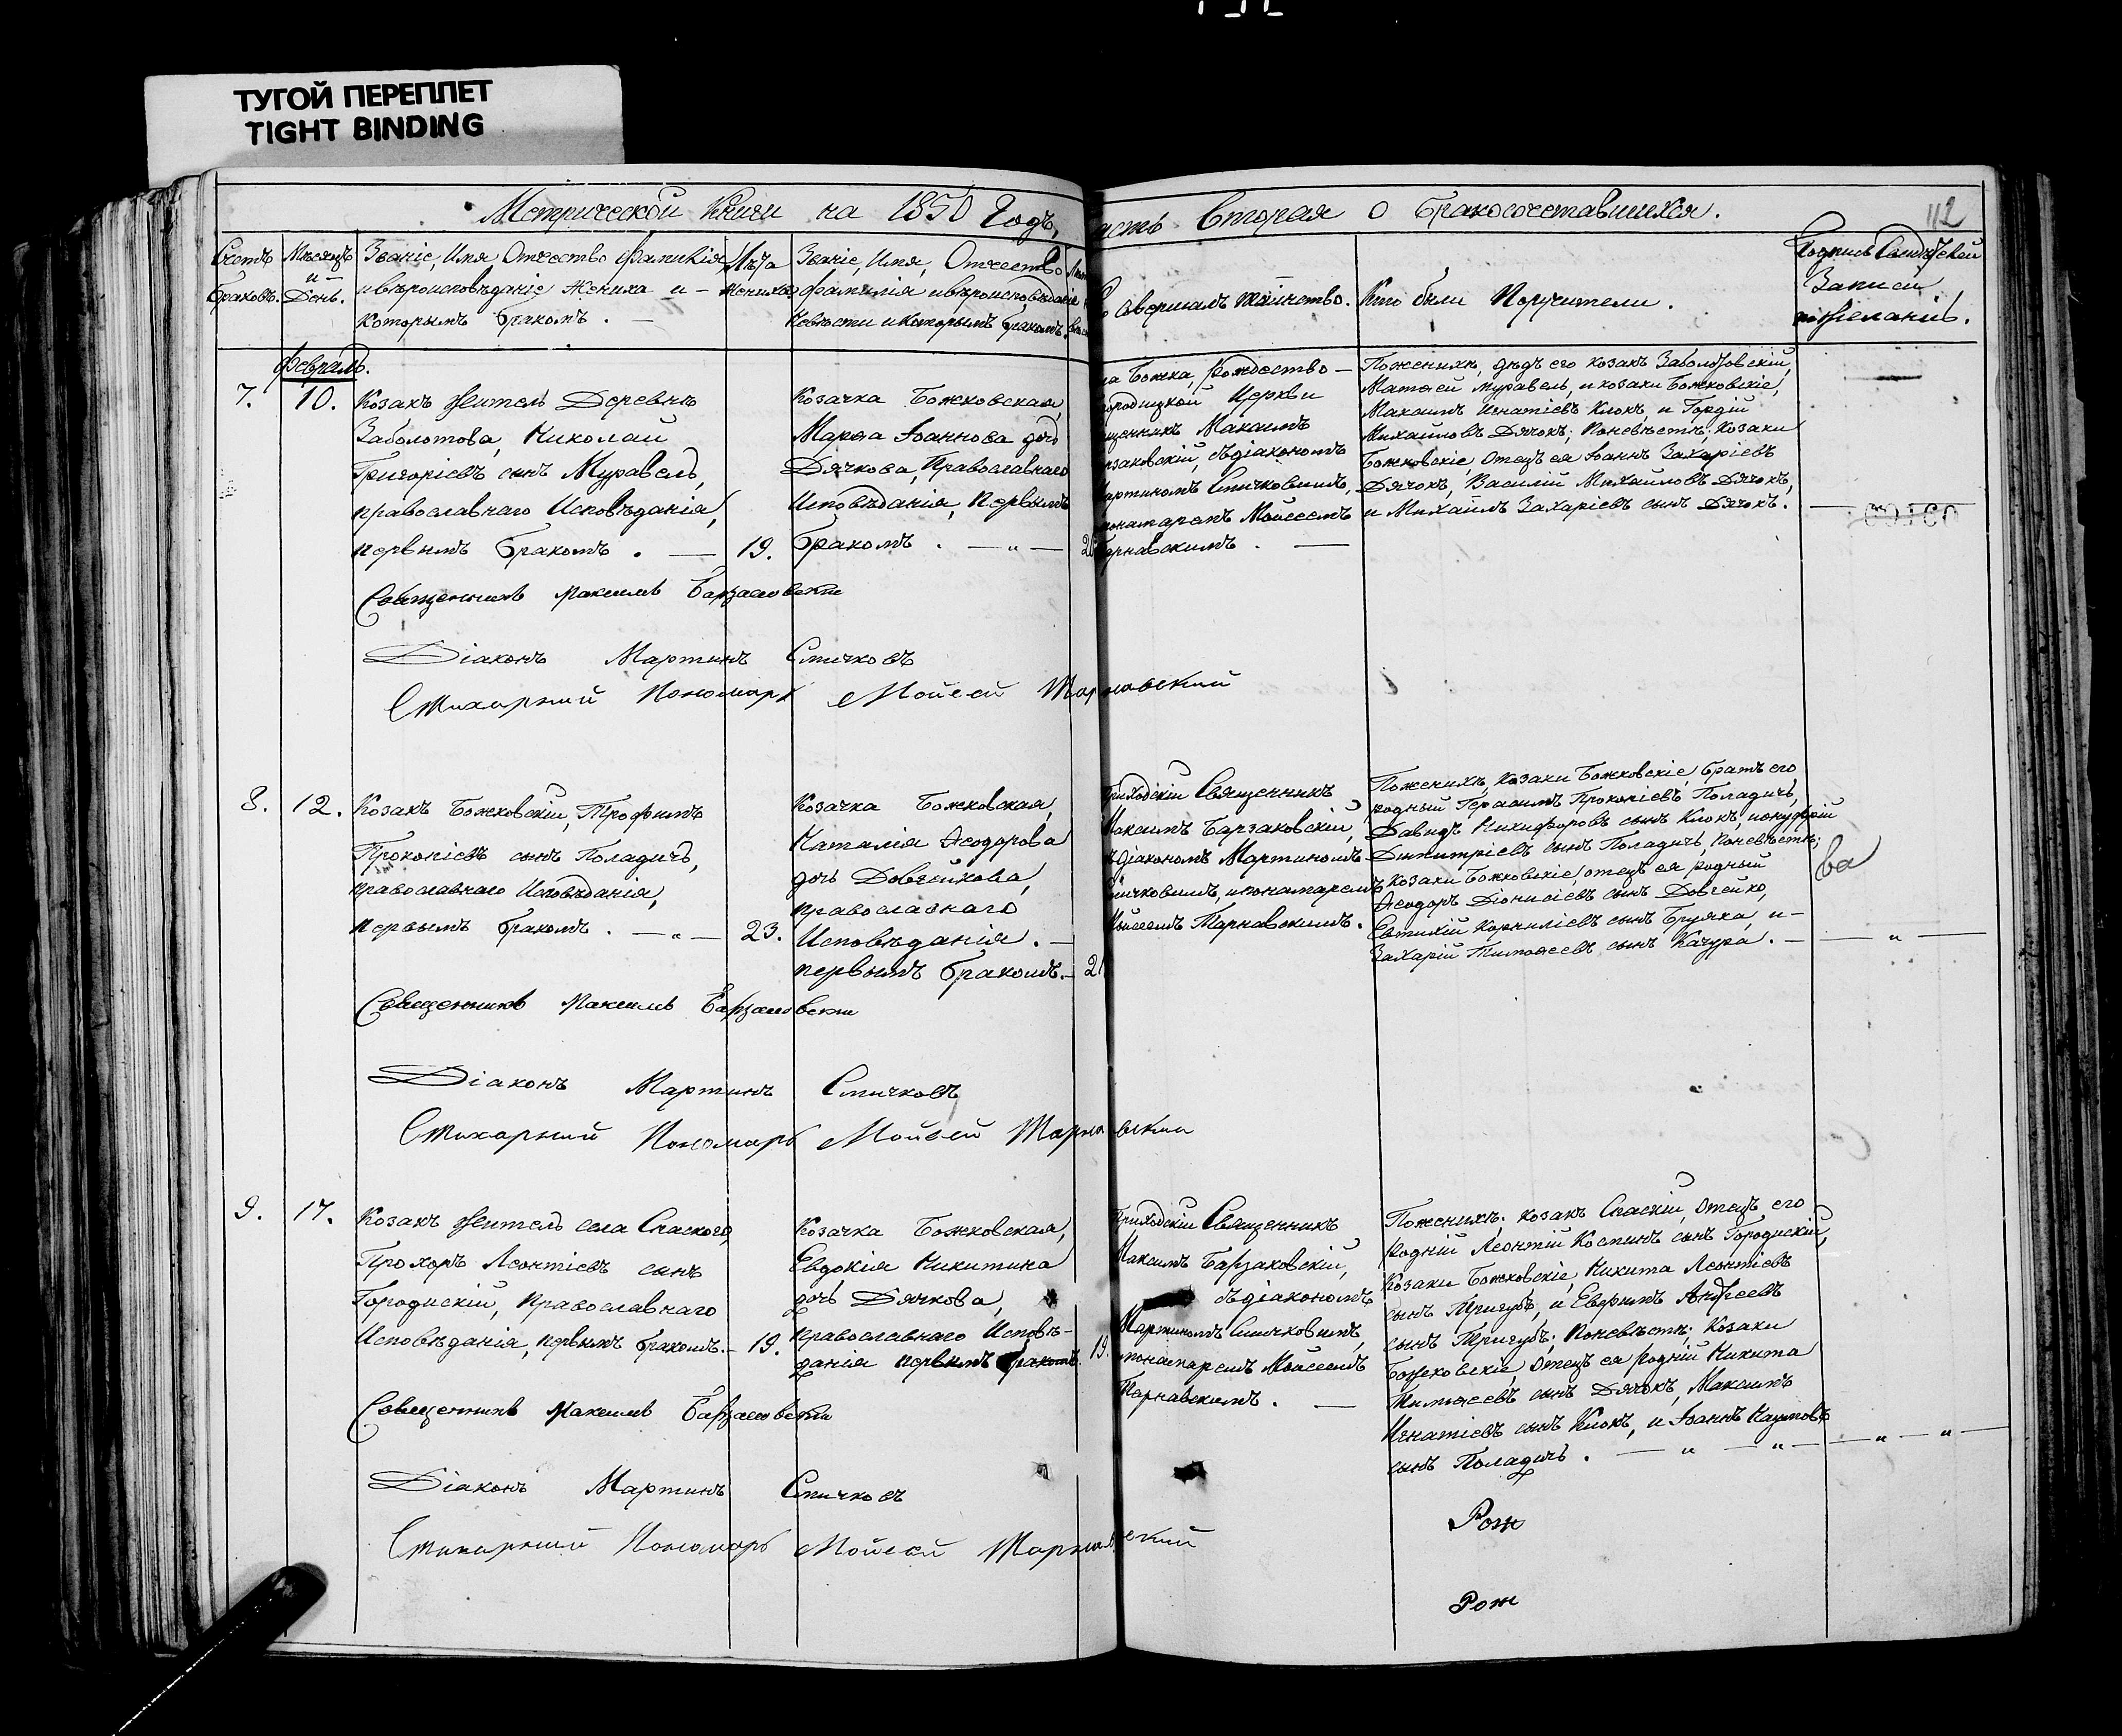 ТУГОЙ ПЕРЕПЛЕТ
TIGHT BINDING
Метрической Книги на 1850 Годъ,
асть Вторая о бракосочетавшихся.
112
Счетъ
браковъ.
Мѣсяцъ
и
День.
Званіе, Имя, Отчество Фамилія
и вѣроисповѣданіе Жениха и —
которымъ бракомъ. —
Лѣта
Жениха
Званіе, Имя, Отчество
фамилія и вѣроисповѣданіе
Невѣсты и которымъ бракомъ.
Совершалъ таинство.
Кто были Поручители.
Подпись Свидѣтелей
Записи
по Желанію.
Февраль.
7.
10.
Козакъ Житель Деревни
Заболотова, Николай
Григоріевъ сынъ Муравель,
православнаго Исповѣданія,
первымъ бракомъ. —
19.
Козачка Божковская,
Марѳа Іоаннова дочь
Дячкова, Православнаго
Исповѣданія, первымъ
бракомъ. — „ —
20
Божка, Рождество —
городицкой Церкви
щенникъ Максимъ
рзаковскій, съ діакономъ
артиномъ Спичковымъ,
понамаремъ Мойсеемъ
арнавскимъ. —
По женихѣ, дѣдъ его козакъ Заболотовскій,
Матѳей Муравель, и козаки Божковскіе,
Максимъ Игнатіевъ Клокъ, и Гордій
Михайловъ Дячокъ; По невѣстѣ; Козаки
Божковскіе, Отецъ ея Іоаннъ Захаріевъ
Дячокъ, Василій Михайловъ Дячокъ,
и Михаилъ Захаріевъ сынъ Дячокъ. —
Священникъ Максимъ Барзаковскій
Діаконъ Мартинъ Спичковъ
Стихарный Пономарь Мойсей Тарнавский
8.
12.
Козакъ Божковскій, Трофимъ
Прокопіевъ сынъ Поладичъ,
православнаго Исповѣданія,
первымъ бракомъ. — „ —
23.
Козачка Божковская,
Наталія Ѳеодорова
дочь Довгейкова,
православнаго
Исповѣданія. —
первымъ бракомъ. —
21
Приходскій Священникъ
Максимъ Барзаковскій,
съ діакономъ Мартиномъ
Спичковымъ, и понамаремъ
Мойсеемъ Тарнавскимъ.
По женихѣ, Козаки Божковскіе, братъ его
родный Герасимъ Прокопіевъ Поладичъ,
Давидъ Никифоровъ сынъ Клокъ,
Димитріевъ сынъ Поладичъ, По невѣстѣ;
Козаки Божковскіе, отецъ ея родный
Ѳеодоръ Діонисіевъ сынъ Довгейко,
Евтихій Корниліевъ сынъ Бруяка, и —
Захарій Тимоѳеевъ сынъ Качура. — — „ —
ва
Священникъ Максимъ Барзаковскій
Діаконъ Мартинъ Спичковъ
Стихарный Пономарь Мойсей Тарнавскии
9.
17.
Козакъ Житель села Спаского,
Прохоръ Леонтіевъ сынъ
Городискій, Православнаго
Исповѣданія, первымъ бракомъ. —
19.
Козачка Божковская,
Евдокія Никитина
дочь Дячкова,
православнаго Исповѣ-
данія первымъ бракомъ.
19.
Приходскій Священникъ
Максимъ Барзаковскій,
съ діакономъ
Мартиномъ Спичковымъ,
понамаремъ Мойсеемъ
Тарнавскимъ. —
По женихѣ: козакъ Спаскій, Отецъ его
родній Леонтій Косминъ сынъ Городискій,
Козаки Божковскіе, Никита Леонтіевъ
сынъ Тригубъ, и Евфимъ Андреевъ
сынъ Тригубъ; По невѣстѣ; Козаки
Божковскіе, Отецъ ея родній Никита
Тимоѳеевъ сынъ Дячокъ, Максимъ
Игнатіевъ сынъ Клокъ, и Іоаннъ Наумовъ
сынъ Поладичъ. — „ — „ — „ — „ —
Священникъ Максимъ Барзаковскій
Діаконъ Мартинъ Спичковъ
Стихарный Пономарь Мойсей Тарнавский
Рож
Рож